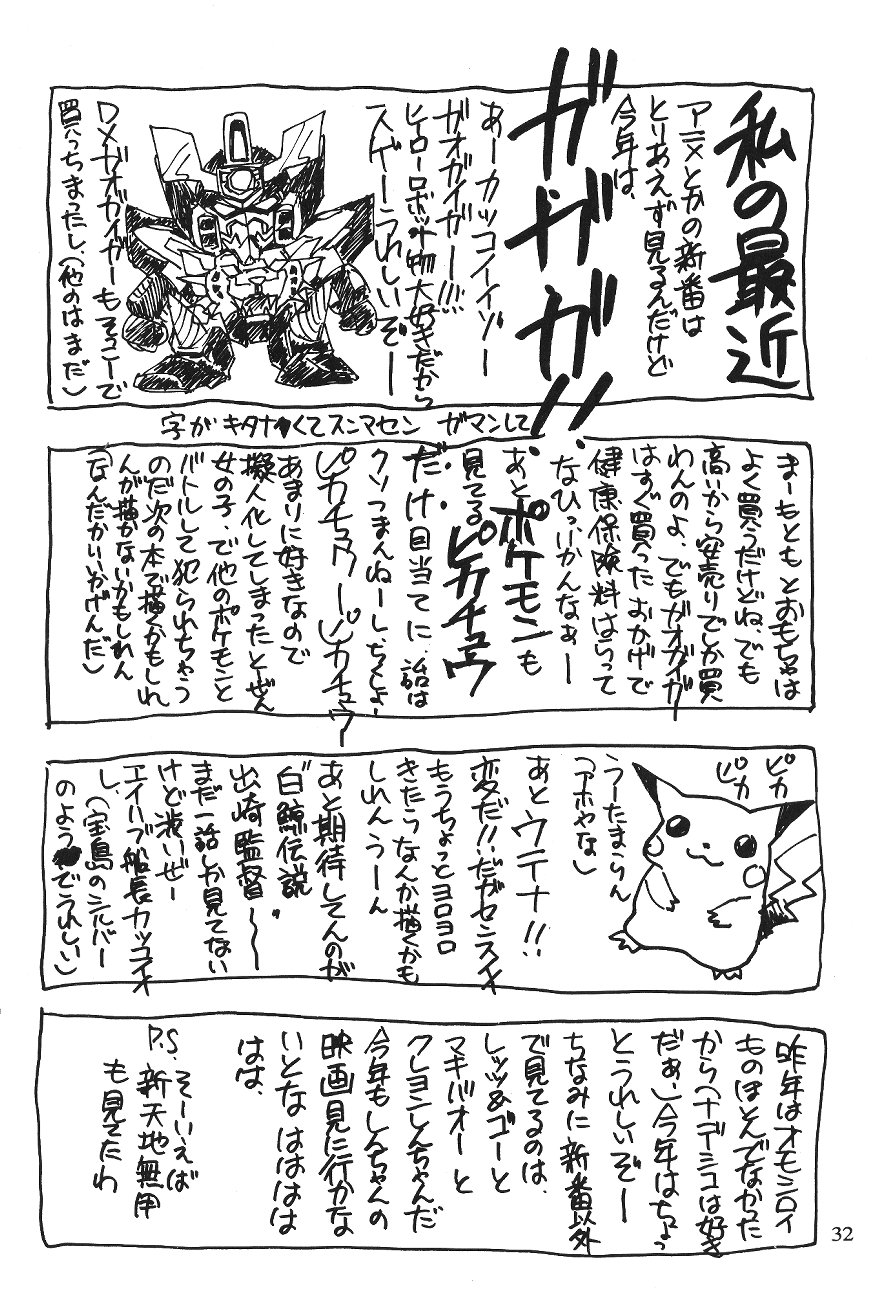 私の最近
アニメとかの新番は
とりあえず見るんだけど
今年は、
ガガガガ!!
あーカッコイイゾー
ガオガイガー!!!
ヒーローロボット物大好きだから
スゲーうれしいぞー
DXガオガイガーもソッコーで
買っちまったし、(他のはまだ)
字がキタナくてスンマセン ガマンして
まーもともとおもちゃは
よく買うだけどね、でも
高いから安売りでしか買
わんのよ、でもガオガイガー
はすぐ買った おかげで
健康保険料はらって
なひっ、いかんなぁー
あと、ポケモンも
見てる ピカチュウ
だけ目当てに、話は
クソつまんねーし、ちくしょー
ピカチュウーピカチュウー
あまりに好きなので
擬人化してしまったとぜん
女の子、で他のポケモンと
バトルして犯られちゃう
のだ次の本で描くかもしれ
んが描かないかもしれん
(なんだかいいかげんだ)
ピカ
ピカ
うーたまらん
(アホやな)
あとウテナ!!
変だ!!だがセンスイイ
もうちょっとヨロヨロ
きたらなんか描くかも
しれん うーん
あと期待してんのが
白鯨伝説
出崎監督〜
まだ一話しか見てない
けど渋いぜー
エイハブ船長カッコイイ
し、(宝島のシルバー
のようでうれしい)
昨年はオモシロイ
ものほとんでなかった
から(ナデシコは好き
だぁー)今年はちょっ
とうれしいぞー
ちなみに新番以外
で見てるのは、
レッツ&ゴーと
マキバオーと
クレヨンしんちゃんだ
今年もしんちゃんの
映画見に行かな
いとな はははは
はは、
P.S. そーいえば
新天地無用
も見てたわ
32